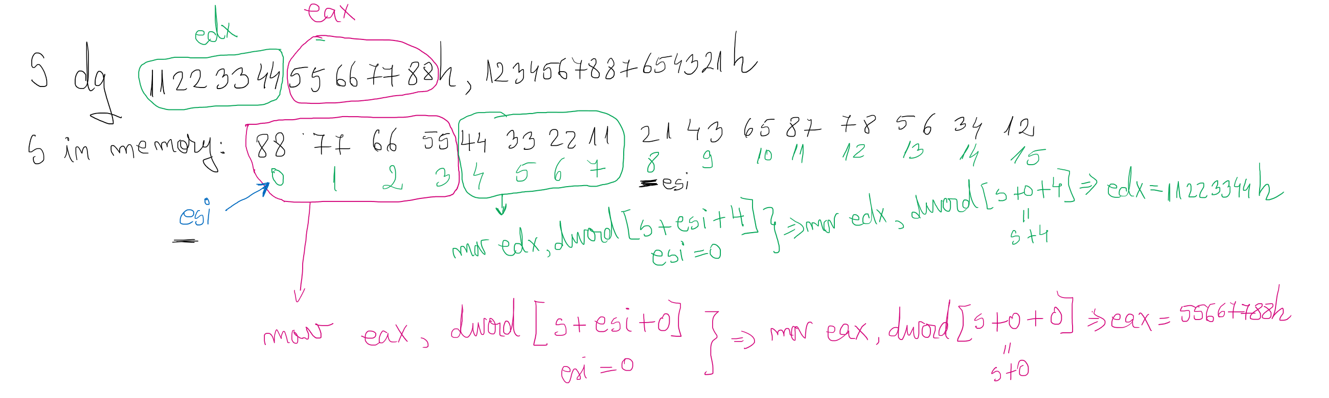 edx eax
S dq 1122334455667788h, 1234567887654321h
S in memory: 88 77 66 55 44 33 22 11 21 43 65 87 78 56 34 12
0 1 2 3 4 5 6 7 8 9 10 11 12 13 14 15
esi esi
mov edx, dword [s+esi+4] } => mov edx, dword [s+0+4] => edx = 11223344h
esi = 0 = s+4
mov eax, dword [s+esi+0] } => mov eax, dword [s+0+0] => eax = 55667788h
esi = 0 = s+0